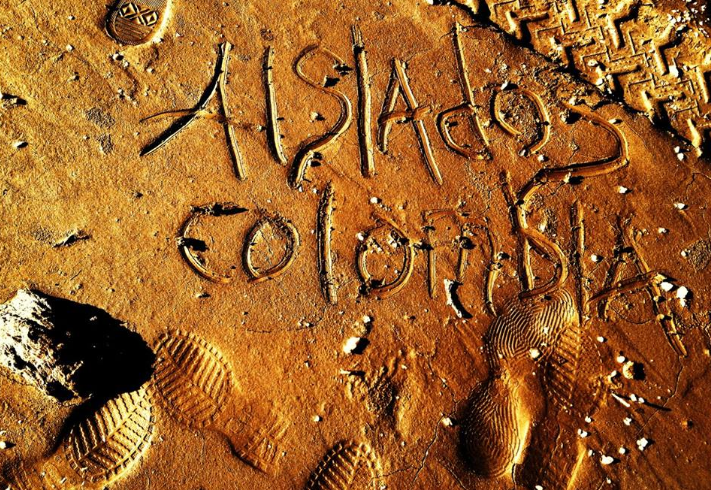 AISlAdos
colomBIA